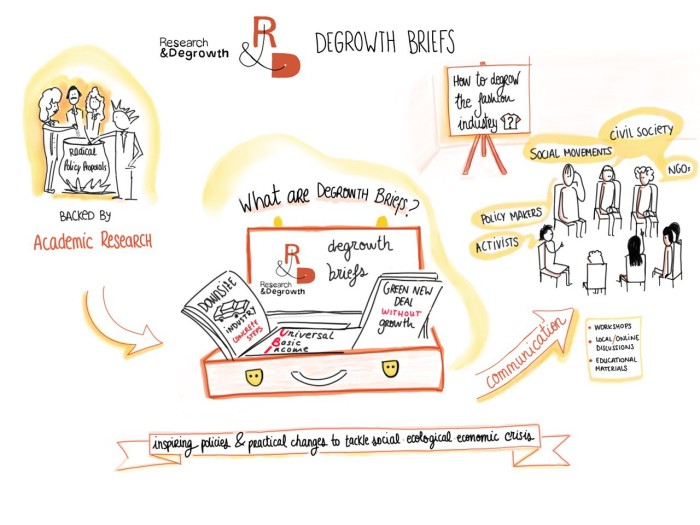 Research
&Degrowth
R
&
D
DEGROWTH BRIEFS
How to degrow
the fashion
industry ???
civil society
SOCIAL MOVEMENTS
NGOs
POLICY MAKERS
ACTIVISTS
Radical
Policy Proposals
BACKED BY
Academic Research
What are Degrowth Briefs?
R
&
D
Research
&Degrowth
degrowth
briefs
DOWNSIZE
INDUSTRY
CONCRETE
STEPS
Universal
Basic
Income
GREEN NEW
DEAL
WITHOUT
growth
communication
• WORKSHOPS
• LOCAL/ONLINE
DISCUSSIONS
• EDUCATIONAL
MATERIALS
inspiring policies & practical changes to tackle social-ecological economic crisis